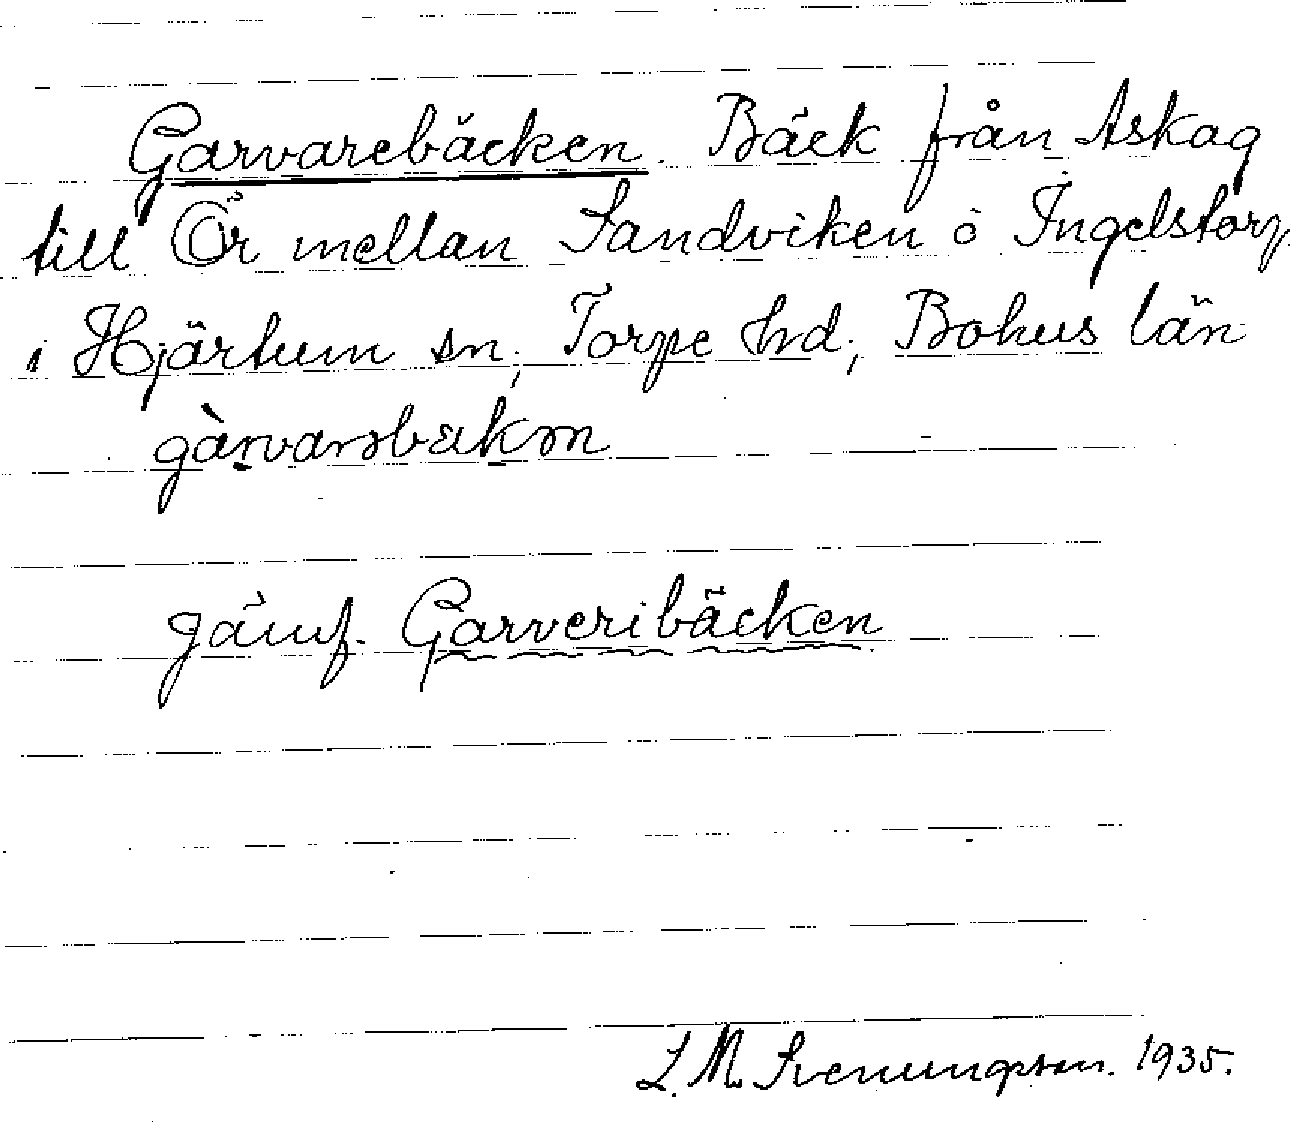 Garvarebäcken. Bäck från Askag
till Ör mellan Sandviken o Ingelstorp
i Hjärtum sn, Torpe hd, Bohus län
gàrvarəbækən
jämf. Garveribäcken
L. M. Svenungsson. 1935.